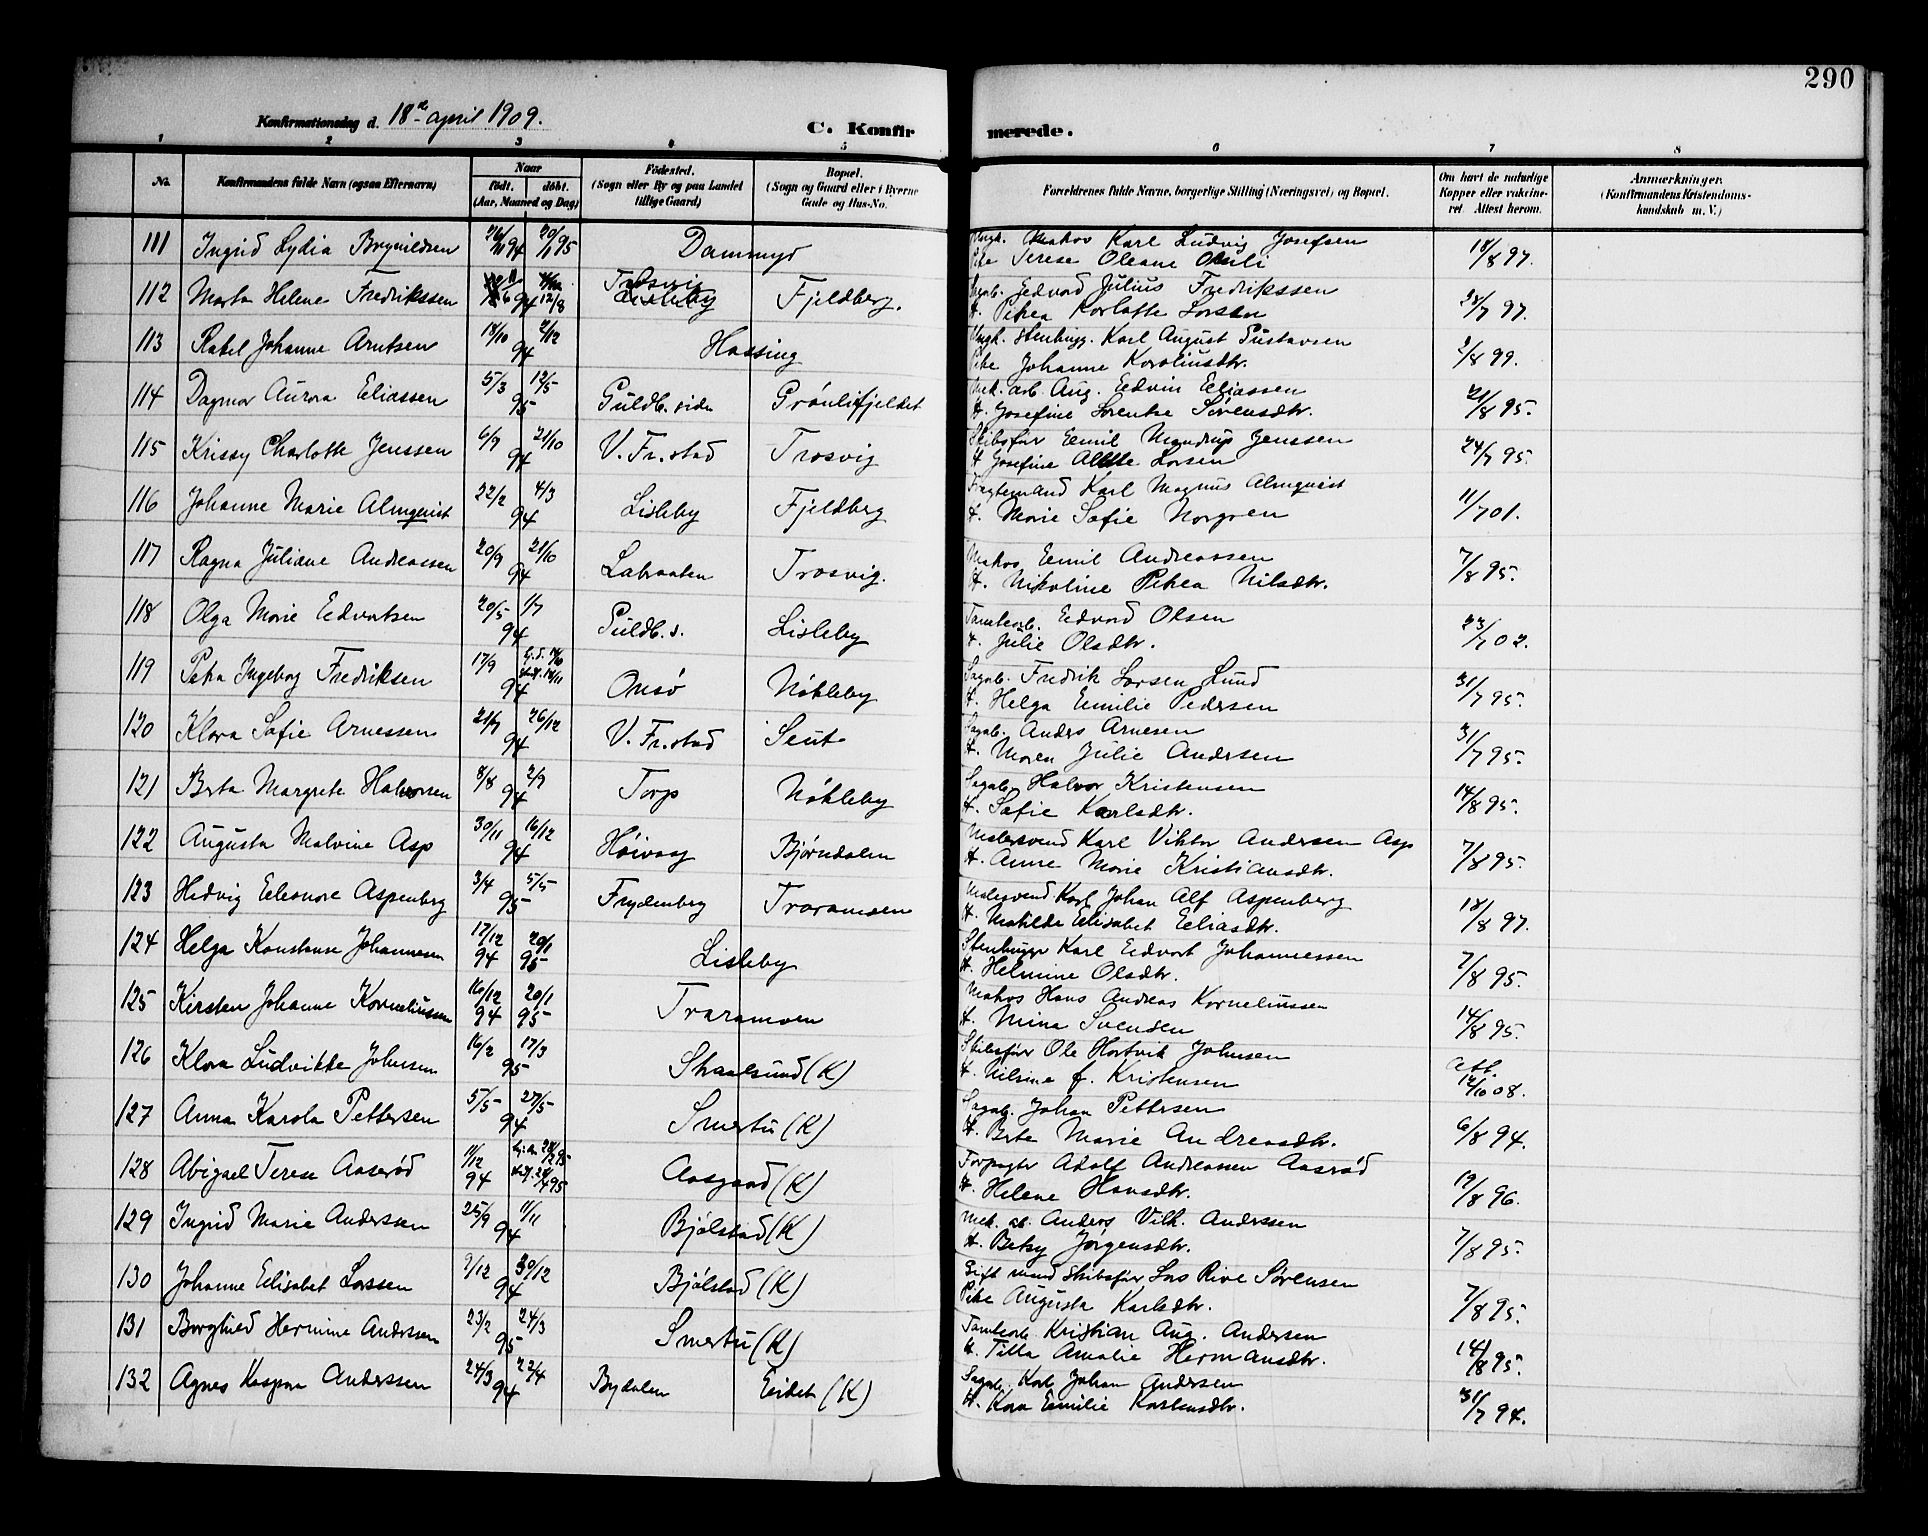 290
Konfirmationsdag d. 18de april 1909.
C. Konfirmerede.
1 2 3 4 5 6 7 8
No. Konfirmandens fulde Navn (ogsaa Efternavn) Naar født. døbt. (Aar, Maaned og Dag) Fødested. (Sogn eller By og paa Landet tillige Gaard) Bopæl. (Sogn og Gaard eller i Byerne Gade og Hus-No. Forældrenes fulde Navne, borgerlige Stilling (Næringsvei) og Bopæl. Om havt de naturlige Kopper eller vaccineret. Attest herom. Anmerkninger. (Konfirmandens Kristendomskundskab m. V.)
111 Ingrid Lydia Brynildsen 26/11 94 20/1 95 Dammyr Ungk. Matros Karl Ludvig Josefsen
Pike Terese Oleane 18/8 97.
112 Marta Helene Fredrikssen 94 12/8 Trosvig Fjeldberg. Sagarb. Edvard Julius Fredrikssen
H. Petrea Karlotte Larsen 28/7 97.
113 Rakel Johanne Arntsen 18/10 2/12 94 Hassing Ungk. Stenhugg. Karl August Gustavsen
Pike Johanne Karoliusdtr. 2/8 99.
114 Dagmar Aurora Eliassen 5/3 12/5 95 Guldb.siden Grønlifjeldet Mek. arb. Aug. Edvin Eliassen
H. Josefine Lorentse Sørensdtr. 21/8 95.
115 Krissy Charlotte Jenssen 6/9 21/10 94 V. Fr.stad Trosvig Skibsfør Emil Mandrup Jenssen
H. Josefine Larsen 24/7 95.
116 Johanne Marie Almquist 22/2 4/3 94 Lisleby Fjeldberg Fragtemand Karl Magnus Almquist
H. Marie Sofie Norgren 11/7 01.
117 Ragna Juliane Andreassen 20/9 21/10 94 Labraaten Trosvig. Matros Emil Andreassen
H. Nikoline Petrea Nilsdtr. 7/8 95.
118 Olga Marie Edvartsen 20/5 1/7 94 Guldb. s. Lisleby Tomtearb. Edvard Olsen
H. Julie Olsdtr. 23/7 02.
119 Petra Ingeborg Fredriksen 17/9 94 Onsø Nøkleby Sagarb. Fredrik Larsen Lund
H. Helga Emilie Pedersen 31/7 95.
120 Klara Sofie Arnessen 21/7 26/12 94 V. Fr.stad Seut Sagarb. Anders Arnesen
H. Maren Julie Andersen 31/7 95.
121 Berta Margrete Halvorsen 8/8 2/9 94 Torp Nøkleby Sagarb. Halvor Kristensen
H. Sofie Karlsdtr. 14/8 95.
122 Augusta Malvine Asp 30/11 16/12 94 Høivag Bjørndalen Malersvend Karl Viktor Andersen Asp
H. Anne Marie Kristiansdtr. 7/8 95.
123 Hedvig Eleonore Aspenberg 3/4 5/5 95 Frydenberg Traramoen Malersvend Karl Johan Alf Aspenberg
H. Matilde Elisabet Eliasdtr. 18/8 97.
124 Helga Konstanse Johannesen 17/12 94 20/1 95 Lisleby Stenhugger Karl Edvart Johannessen
H. Helmine Olsdtr. 7/8 95.
125 Kirsten Johanne Korneliussen 16/12 94 20/1 95 Traramoen Matros Hans Andreas Korneliussen
H. Mina Svendsen 14/8 95.
126 Klara Ludvikke Johnsen 16/2 17/3 95 Straalsund (K) Skibsfør Ole Hartvik Johnsen
H. Nilsine f. Kristensen att. 12/10 08.
127 Anna Karola Pettersen 5/5 27/5 94 Smertu (K) Sagarb. Johan Pettersen
H. Berte Marie Andreasdtr. 6/8 94.
128 Abigael Terese Aaserød 11/12 94 Aasgaard (K) Forpagter Adolf Andreassen Aasrød
H. Helene Hansdtr. 19/8 96.
129 Ingrid Marie Anderssen 25/9 11/11 94 Bjølstad (K) Mek. arb. Anders Vilh. Anderssen
H. Betsy Jørgensdtr. 7/8 95.
130 Johanne Elisabet Larssen 9/12 30/12 94 Bjølstad (K) Gift mand Skibsfør Lars Rive Sørensen
Pike Augusta Karlsdtr. 7/8 95.
131 Borghild Hermine Anderssen 23/2 24/3 95 Smertu (K) Tomtearb. Kristian Aug. Andersen
H. Tilla Amalie Hermansdtr. 14/8 95.
132 Agnes Kaspara Anderssen 24/3 22/4 94 Bydalen Eidet (K) Sagarb. Karl Johan Andersen
H. Kara Emilie Karlsensdtr. 31/7 94.